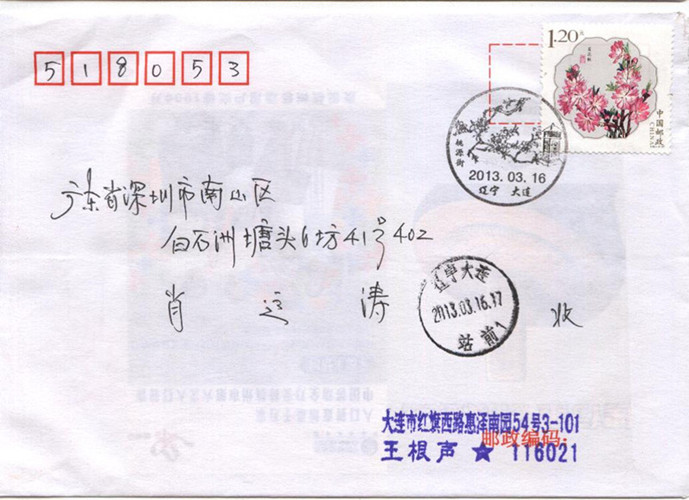 518053
1.20元
中国邮政
CHINA
桃源街
2013.03.16
辽宁 大连
广东省深圳市南山区
白石洲塘头6坊41号402
辽宁大连
2013.03.16.17
站前1
肖运涛 收
大连市红旗西路惠泽南园54号3-101
邮政编码:
王根声 ★ 116021